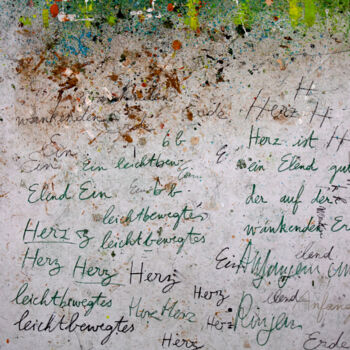 wankenden Erde
Herz H
H
Ein
Ein
ein leichtbew
b b
Elend Ein
leichtbewegtes
leichtbewegtes
Herz
Herz Herz Herz
leichtbewegtes
Herz Herz
Herz
leichtbewegtes
Herz
Herz
Herz ist H
ein Elend gut
der auf der
wankenden Er
elend
Ein
elend
Ringen
Erde